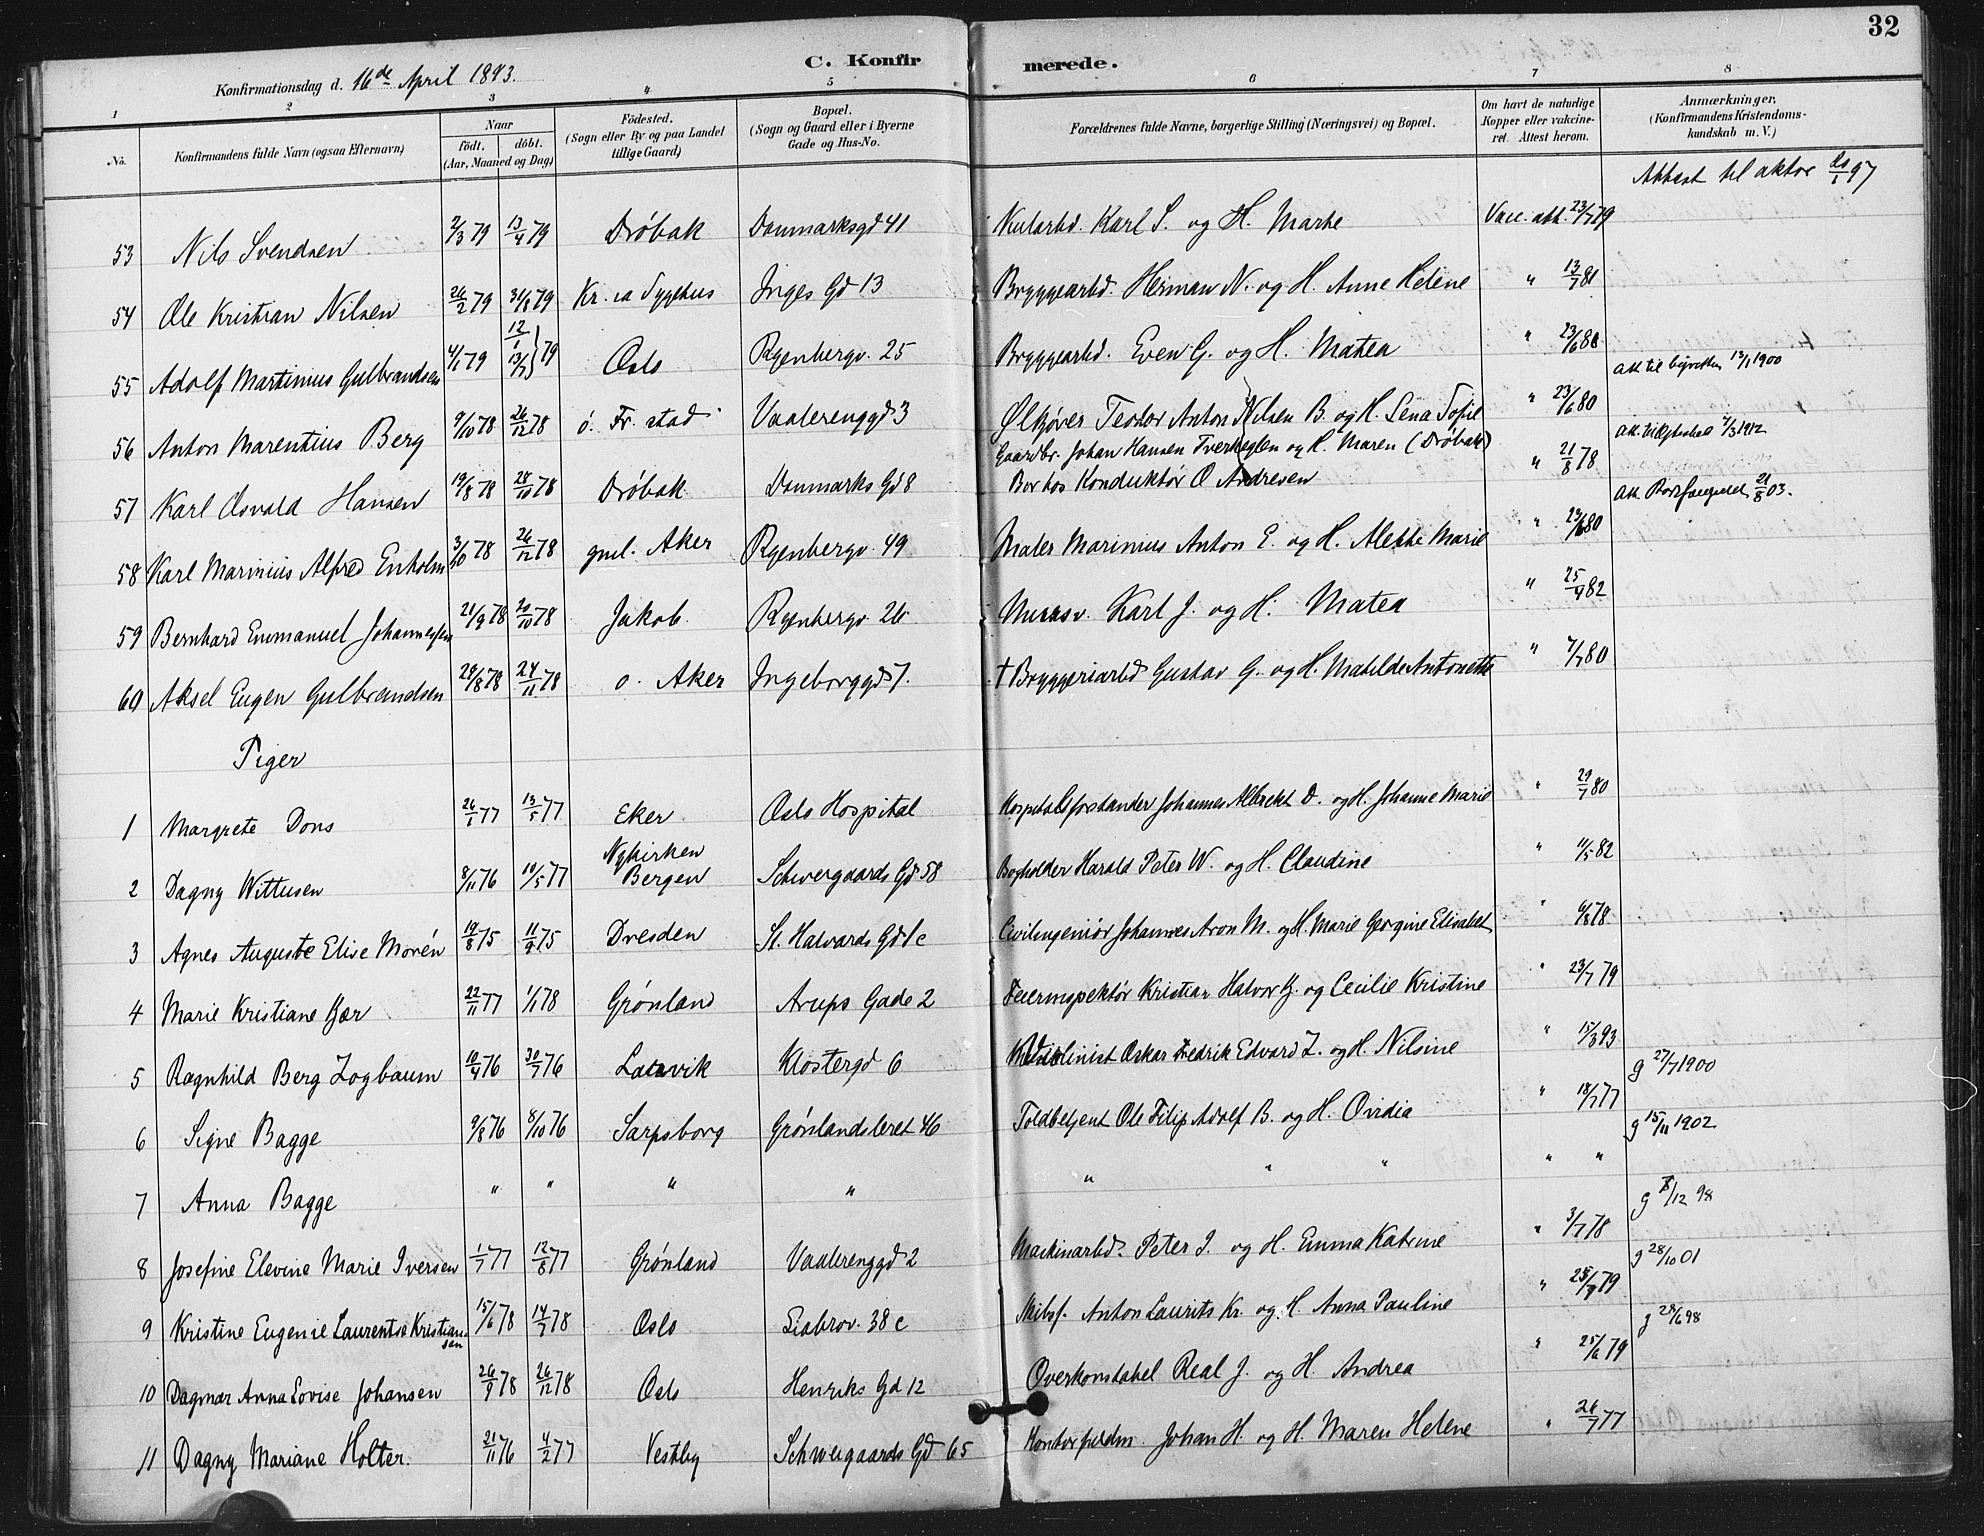 32
C. Konfirmerede.
Konfirmationsdag d. 16de April 1893.
1 2 3 4 5 6 7 8
No.
Konfirmandens fulde Navn (ogsaa Efternavn)
Naar
födt. döbt.
(Aar, Maaned og Dag)
Födested.
(Sogn eller By og paa Landet tillige Gaard)
Bopæl.
(Sogn og Gaard eller i Byerne Gade og Hus-No.
Forældrenes fulde Navne, borgerlige Stilling (Næringsvei) og Bopæl.
Om havt de naturlige Kopper eller vakcineret. Attest herom.
Anmærkninger,
(Konfirmandens Kristendomskundskab m. V.)
Attest til aktor 97
53 Nils Svendsen 2/3 79 13/4 79 Dröbak Danmarksgd 41 Karl S. og H. Marte Vacc. att. 23/7 79
54 Ole Kristian Nilsen 26/2 79 79 Kr.ia Sygehus Inges Gd 13 Bryggearbd. Herman N. og H. Anne Helene " 13/7 81
55 Adolf Martinius Gulbrandsen 4/1 79 12/1 13/7 } 79 Oslo Ryenbergv. 25 Bryggearbd. Even G. og H. Matea " 23/6 80 att til byretten 13/1 1900
56 Anton Marentius Berg 9/10 78 26/12 78 ö. Fr. stad Vaalerenggd 3 Ølkjører Teodor Anton Nilsen B. og H. Lena Sofie " 23/6 80
57 Karl Osvald Hansen 19/8 78 28/10 78 Dröbak Danmarks Gd 8 Gaardbr. Johan Hansen og H. Maren (Dröbak) " 21/8 78
Bor hos Konduktör O Andresen att 21/8 03.
58 Karl Marinius Alfred Enholm 3/10 78 26/12 78 gml. Aker Ryenbergv. 49 Maler Marinius Anton E. og H. Alette Marie " 23/6 80
59 Bernhard Emmanuel Johannessen 21/9 78 20/10 78 Jakob Ryenbergv. 26 Murersv. Karl J. og H. Matea " 25/4 82
60 Aksel Eugen Gulbrandsen 28/8 78 24/11 78 ö. Aker Ingeborggd 7. † Bryggeriarbd Gustav G. og H. Matilde Antonette " 7/7 80
Piger
1 Margrete Dons 26/1 77 13/5 77 Eker Oslo Hospital Hospitalsforstander Johannes Albrekt D. og H. Johanne Marie " 29/7 80
2 Dagny Wittusen 8/11 76 10/5 77 Nykirken Bergen Schweigaards Gd 58 Bogholder Harald Peter W. og H. Claudine " 11/5 82
3 Agnes Auguste Elise Morén 19/8 75 11/9 75 Dresden St. Halvards Gd 1c Civilingeniör Johannes Aron M. og H. Marie Georgine Elisabet " 6/8 78
4 Marie Kristiane Kjær 22/11 77 1/1 78 Grönland Arups Gade 2 Feierinspektör Kristian Halvor Kj. og Cecilie Kristine " 23/7 79
5 Ragnhild Berg Zogbaum 10/4 76 30/7 76 Larvik Klostergd 6 Oskar Fredrik Edvard Z. og H. Nilsine " 15/3 93 g 27/7 1900
6 Signe Bagge 9/8 76 8/10 76 Sarpsborg Grönlandsleret 46 Toldbetjent Ole Filip Adolf B. og H. Ovidia " 18/7 77 g 15/11 1902
7 Anna Bagge " " " " " " " " " g 8/12 98
8 Josefine Elevine Marie Iversen 1/7 77 12/8 77 Grönland Vaalerenggd 2 Maskinarbd. Peter I. og H. Emma Katrine " 3/7 78 g 28/10 01
9 Kristine Eugenie Laurentse Kristiansen 15/6 78 14/7 78 Oslo Liabrov. 38 c Skibsf. Anton Laurits Kr. og H. Anna Pauline " 25/9 79 g 28/6 98
10 Dagmar Anna Lovise Johansen 26/9 78 26/12 78 Oslo Henriks Gd 12 Overkonstabel Real J. og H. Andrea " 25/6 79
11 Dagny Mariane Holter. 21/11 76 4/2 77 Vestby Schweigaards Gd 65 Kontorfuldm. Johan H. og H. Maren Helene " 26/7 77